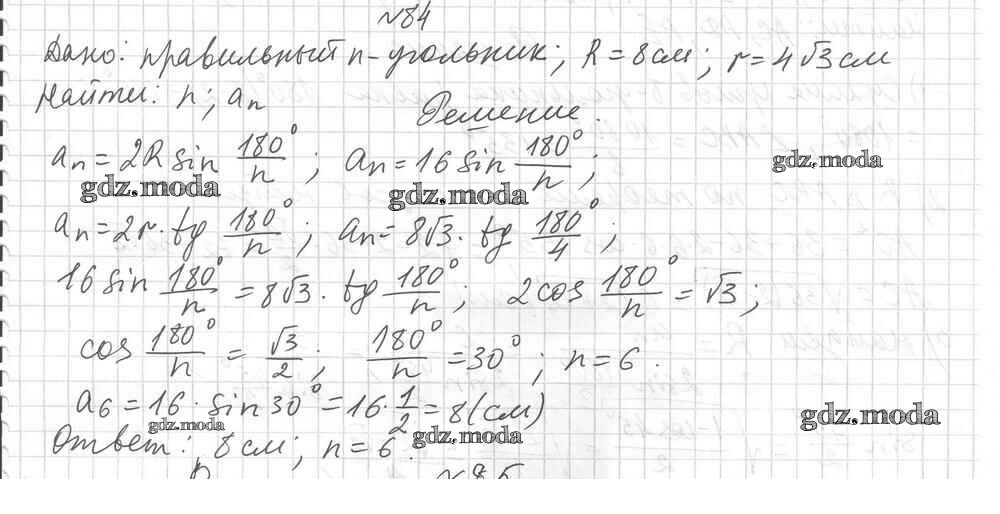 №84
Дано: правильный n-угольник; R = 8 см; r = 4√3 см
Найти: n; aₙ
Решение.
aₙ = 2R sin 180°/n ; aₙ = 16 sin 180°/n ;
gdz.moda gdz.moda gdz.moda
aₙ = 2r · tg 180°/n ; aₙ = 8√3 · tg 180°/4 ;
16 sin 180°/n = 8√3 · tg 180°/n ; 2cos 180°/n = √3 ;
cos 180°/n = √3/2 ; 180°/n = 30° ; n = 6 .
a₆ = 16 · sin 30° = 16 · 1/2 = 8 (см)
gdz.moda gdz.moda gdz.moda
Ответ: 8 см; n = 6 .
№85